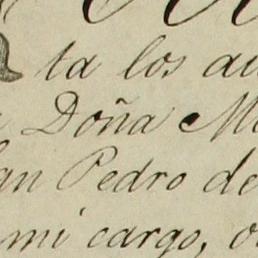 ta los au
Doña M
an Pedro de
mi cargo, o